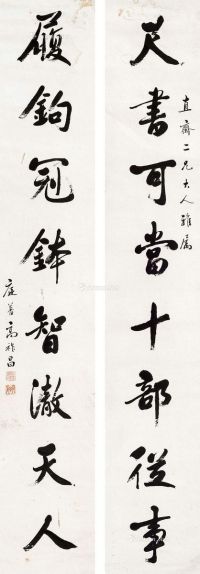 尺書可當十部從事
直齋二兄大人雅屬
履鉤冠鉢智澈天人
庭善高樹昌